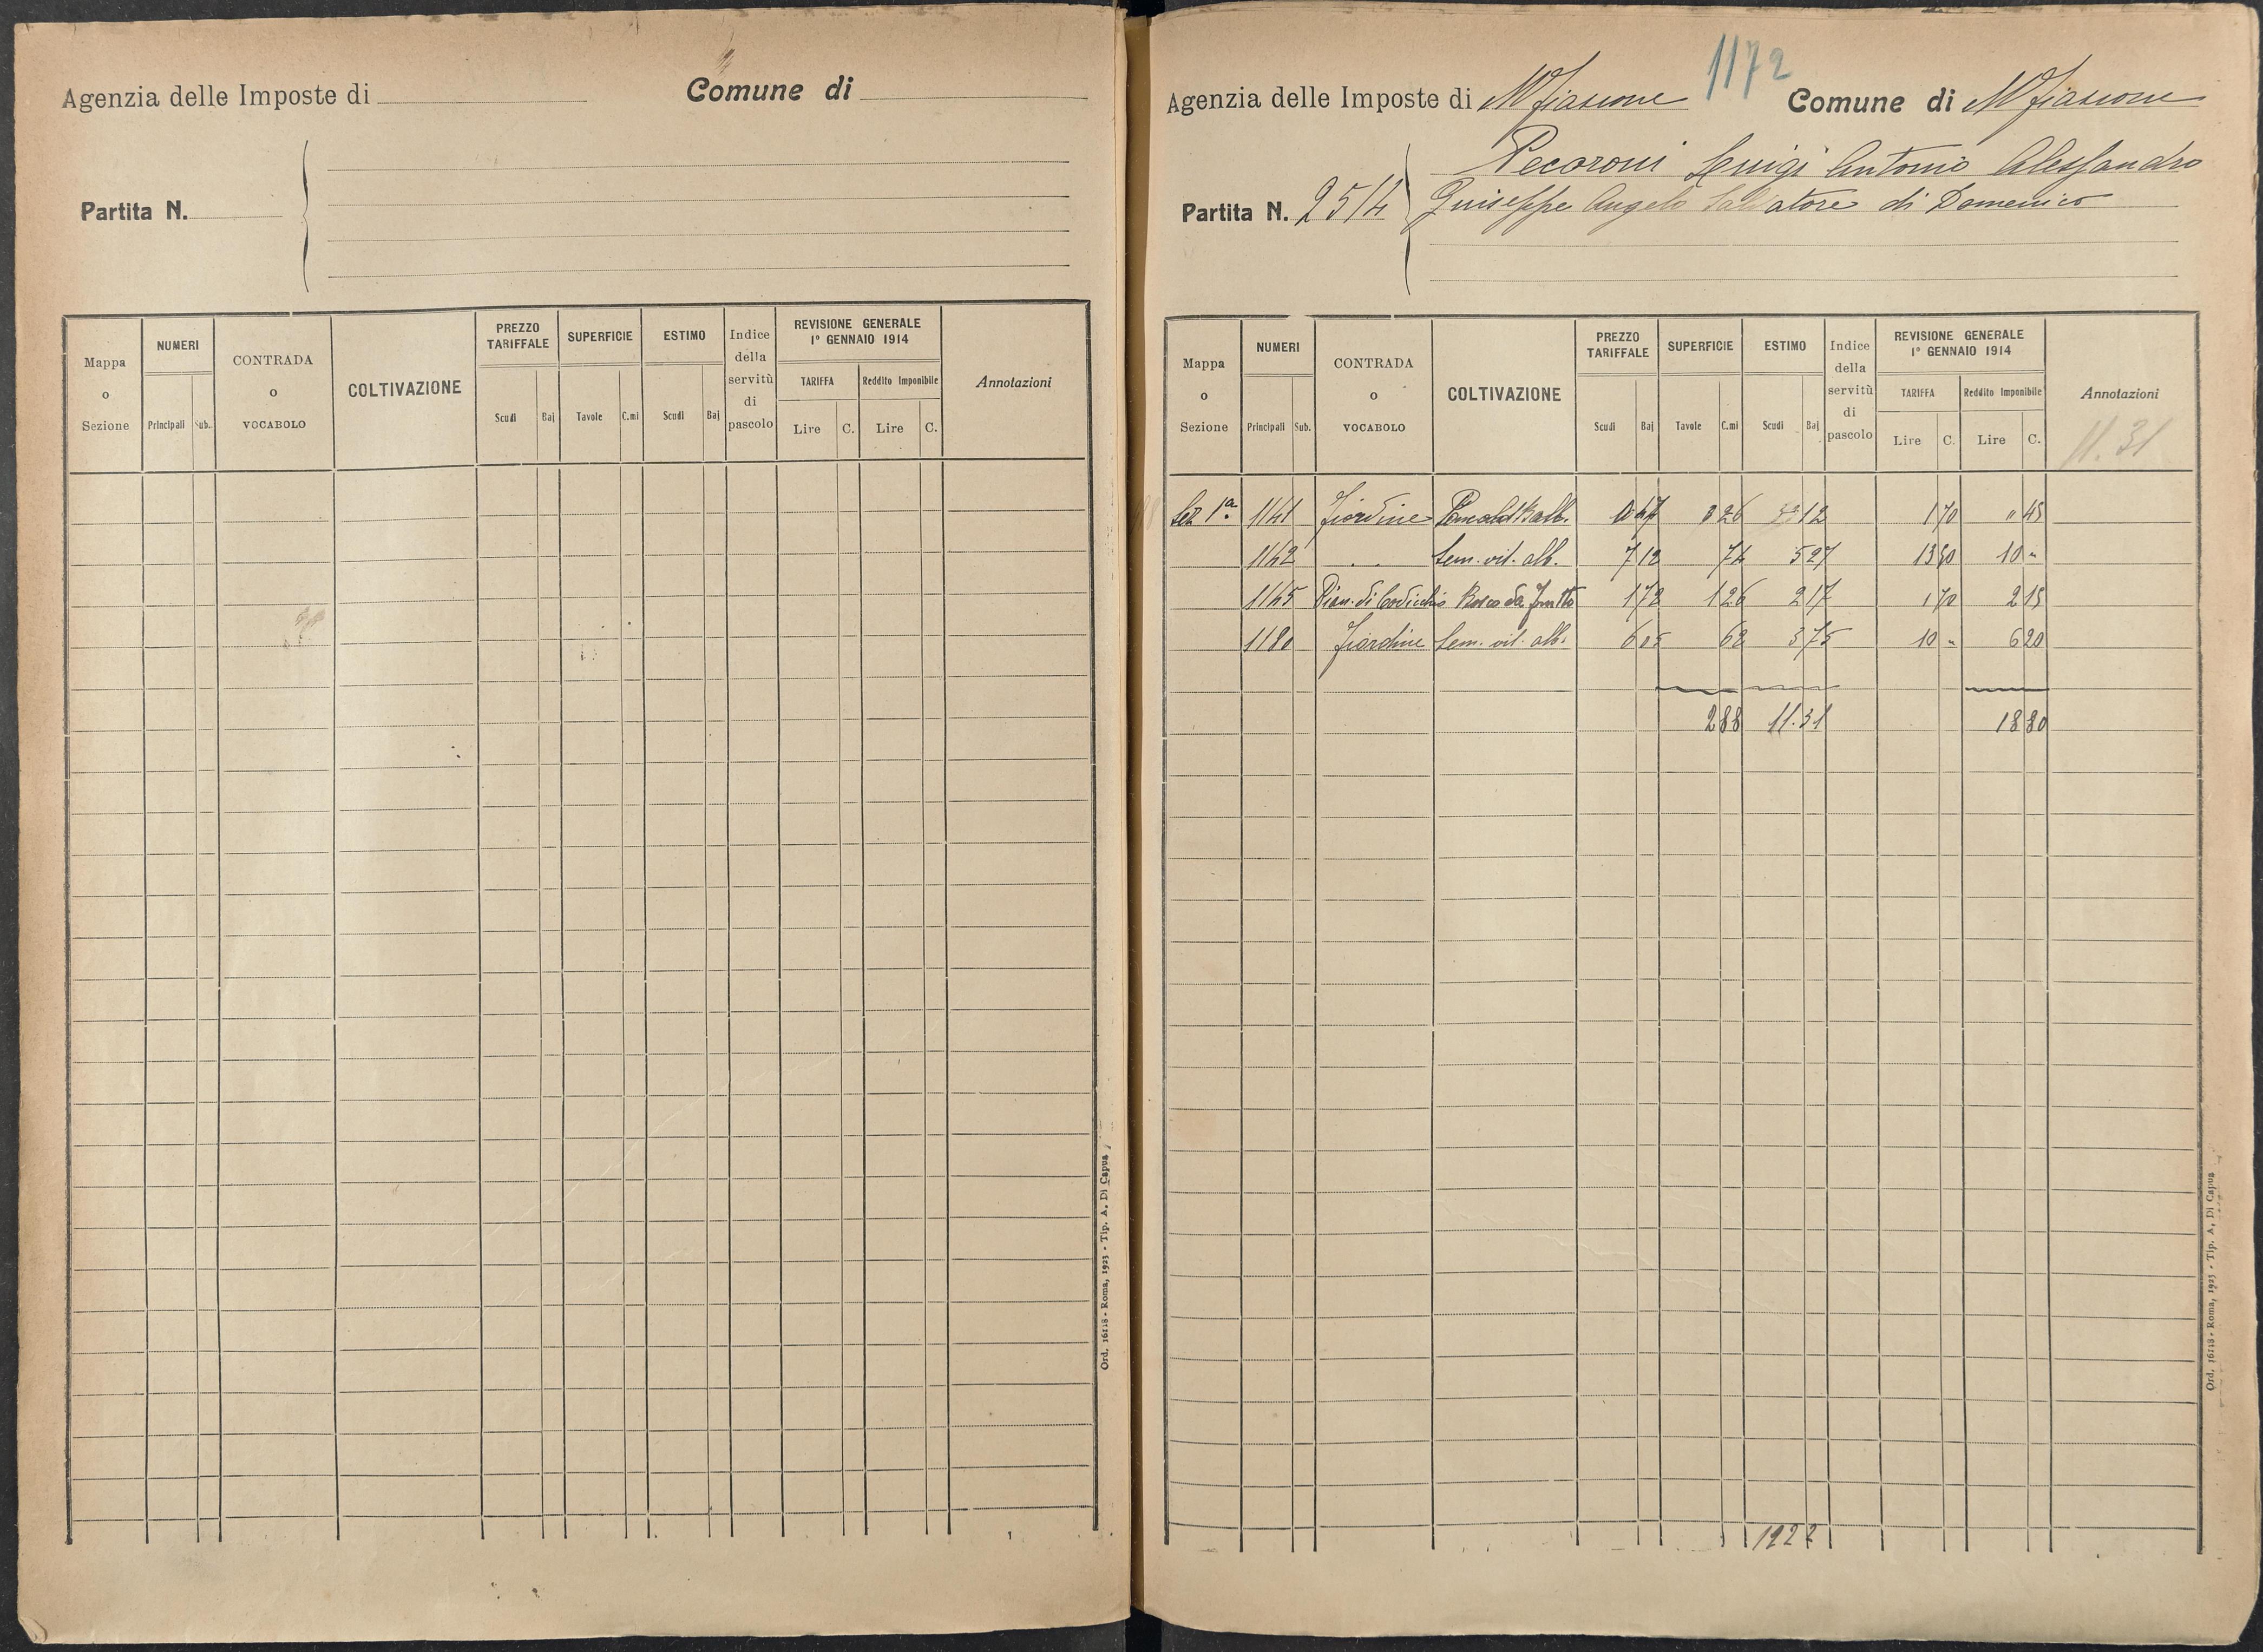 Agenzia delle Imposte di
Comune di
Partita N.
Mappa o Sezione
NUMERI
Principali
Sub.
CONTRADA o VOCABOLO
COLTIVAZIONE
PREZZO TARIFFALE
Scudi
Baj
SUPERFICIE
Tavole
C.mi
ESTIMO
Scudi
Baj
Indice della servitù di pascolo
REVISIONE GENERALE 1° GENNAIO 1914
TARIFFA
Lire
C.
Reddito Imponibile
Lire
C.
Annotazioni
Ord. 16118 - Roma, 1923 - Tip. A. Di Capua
1172
Agenzia delle Imposte di Mfiascone Comune di Mfiascone
Pecoroni Luigi Antonio Alessandro
Partita N. 2514 Guiseppe Angelo Salvatore di Domenico
Mappa o Sezione
NUMERI
Principali
Sub.
CONTRADA o VOCABOLO
COLTIVAZIONE
PREZZO TARIFFALE
Scudi
Baj
SUPERFICIE
Tavole
C.mi
ESTIMO
Scudi
Baj
Indice della servitù di pascolo
REVISIONE GENERALE 1° GENNAIO 1914
TARIFFA
Lire
C.
Reddito Imponibile
Lire
C.
Annotazioni
11.31
Sez 1ª 1141 Fiordine alb. 0 47 26 12 1 70 " 45
1142 . . Sem. vit. alb. 7 12 74 5 27 13 50 10 "
1145 Pian. di Bosco da frutto 1 72 1 26 2 17 1 70 2 15
1180 Fiordine Sem. vit. alb. 6 05 62 3 75 10 " 6 20
2 88 11.31 18 80
1922
Ord. 16118 - Roma, 1923 - Tip. A. Di Capua